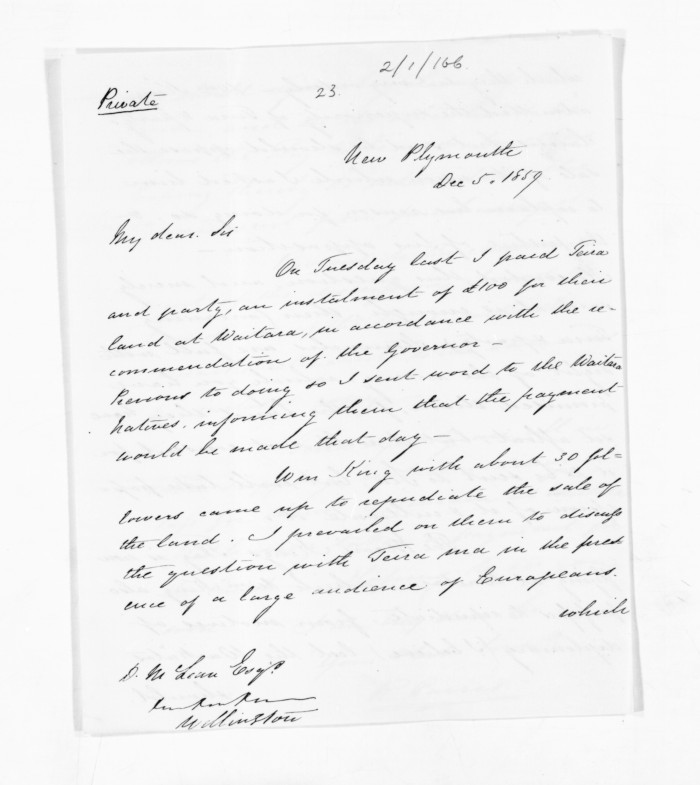 2/1/166.
Private
23.
New Plymouth
Dec 5. 1859
My dear Sir
On Tuesday last I paid Teira
and party, an instalment of £100 for their
land at Waitara, in accordance with the re-
commendation of the Governor -
Previous to doing so I sent word to the Waitara
Natives, informing them that the payment
would be made that day -
Wm King with about 30 fol-
lowers came up to repudiate the sale of
the land. I prevailed on them to discuss
the question with Teira ma in the pres
ence of a large audience of Europeans.
which
D. McLean Esqr.
Wellington